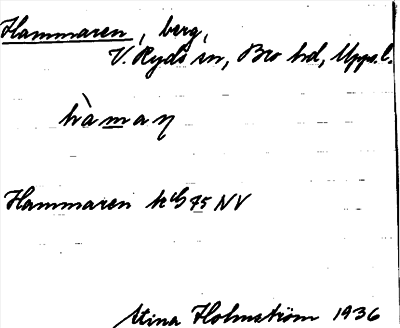 Hammaren, berg,
V. Ryds sn, Bro hd, Uppl.
hàmaŋ
Hammaren 75 NV
Stina Holmström 1936